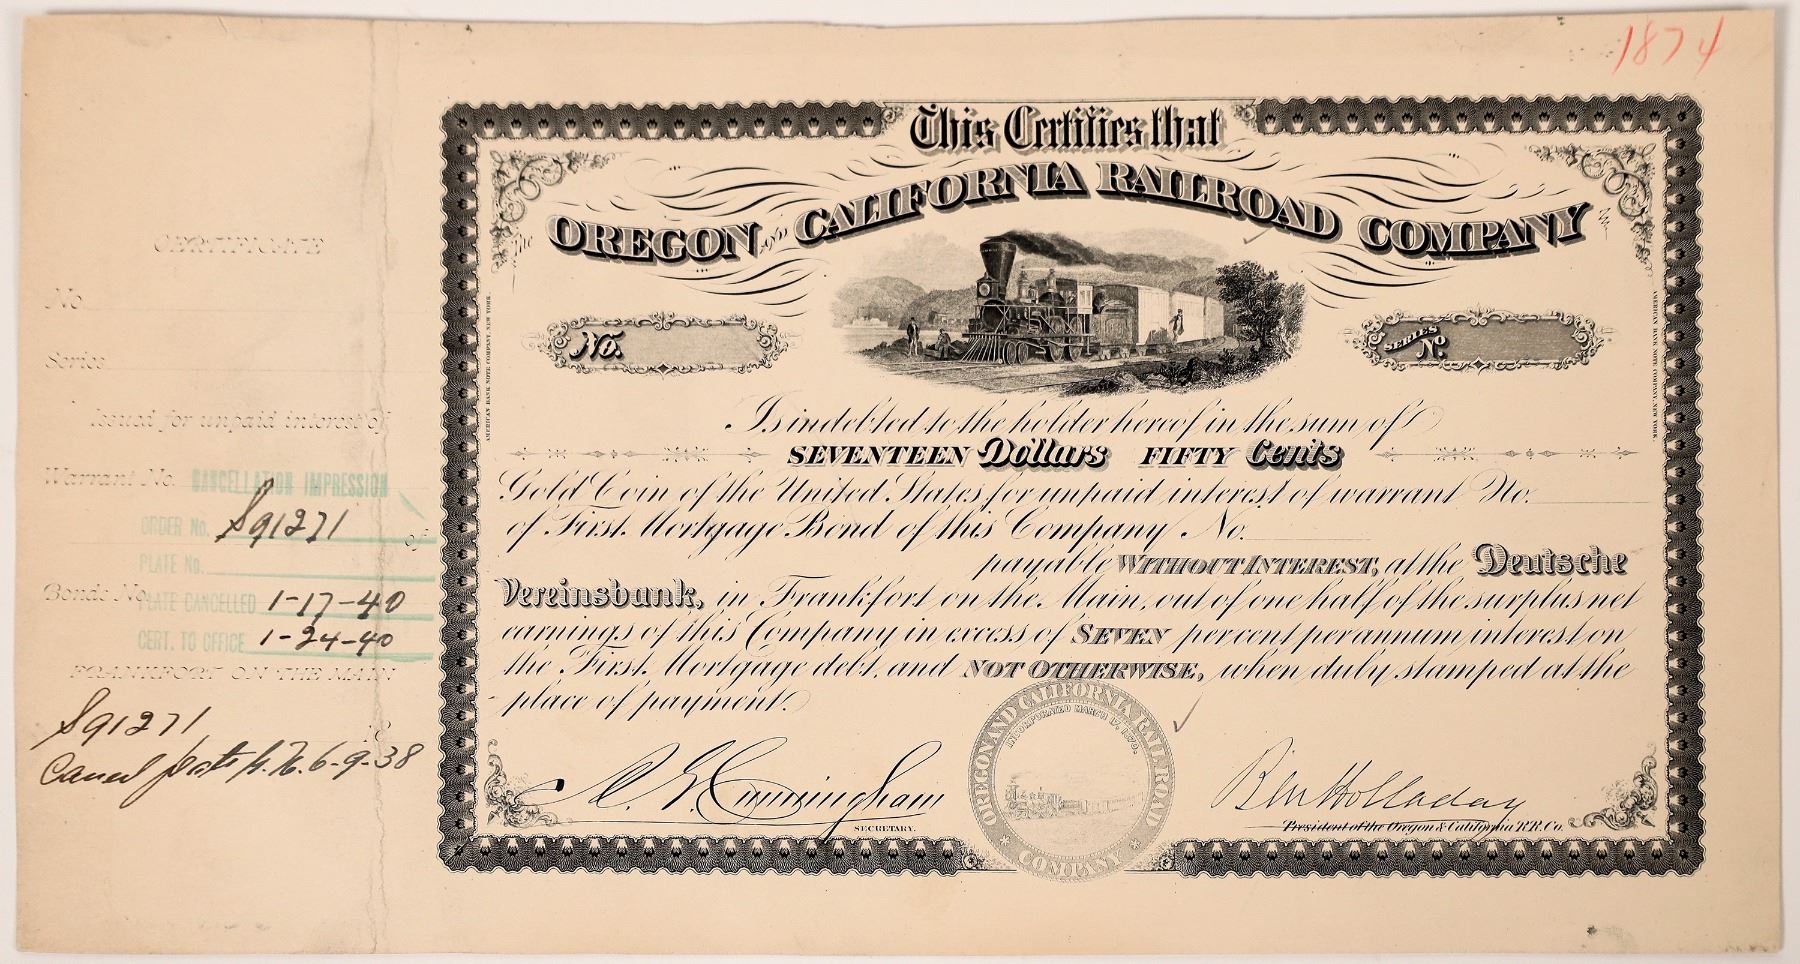 1874
This Certifies that
The OREGON AND CALIFORNIA RAILROAD COMPANY
No.
SERIES No
Is indebted to the holder hereof in the sum of
SEVENTEEN Dollars FIFTY Cents
Gold Coin of the United States, for unpaid interest of warrant No.
of First Mortgage Bond of this Company No.
payable WITHOUT INTEREST, at the Deutsche
Vereinsbank, in Frankfort on the Main, out of one half of the surplus net
earnings of this Company in excess of SEVEN per cent per annum interest on
the First Mortgage debt, and NOT OTHERWISE, when duly stamped at the
place of payment.
OREGON AND CALIFORNIA RAILROAD
COMPANY
INCORPORATED MARCH 17, 1870.
A. G. Cunningham
SECRETARY.
Ben Holladay
President of the Oregon & California R.R. Co.
AMERICAN BANK NOTE COMPANY, NEW YORK.
AMERICAN BANK NOTE COMPANY, NEW YORK.
CERTIFICATE
No.
Series
Issued for unpaid interest of
Warrant No.
of
Bonds No.
FRANKFORT ON THE MAIN
18
CANCELLATION IMPRESSION
ORDER No. S91271
PLATE No.
PLATE CANCELLED 1-17-40
CERT. TO OFFICE 1-24-40
S91271
Cancel 6-9-38